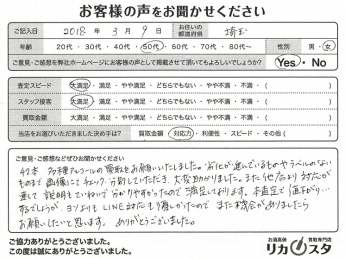 お客様の声をお聞かせください
ご記入日 2018年 3月 9日 お住いの都道府県 埼玉
年齢 20代・30代・40代・50代・60代・70代・80代〜 性別 男・女
ご意見・ご感想を弊社ホームページにお客様の声として掲載させて頂いてもよろしいでしょうか? Yes・No
査定スピード 大満足・満足・やや満足・どちらでもない・やや不満・不満・( )
スタッフ接客 大満足・満足・やや満足・どちらでもない・やや不満・不満・( )
買取金額 大満足・満足・やや満足・どちらでもない・やや不満・不満・( )
当店をお選びいただきました決め手は? 買取金額・対応力・利便性・スピード・その他( )
ご意見・ご感想などぜひお聞かせください
42本 多種アルコールの買取をお願いいたしました。劣化が進んでいるものやラベルのない
ものまで画像にてチェック、分別していただき、大変助かりました。また他店より対応が
速くて 説明もていねいで 分かりやすかったので 満足しております。本査定で 値下がり…
するでしょうが、ヨソよりもLINE対応もり良しかったので また機会がありましたら
お願いしたいと思います。ありがとうございました。
ご協力ありがとうございました。
この度は誠にありがとうございました。
お酒高価買取専門店
リカスタ